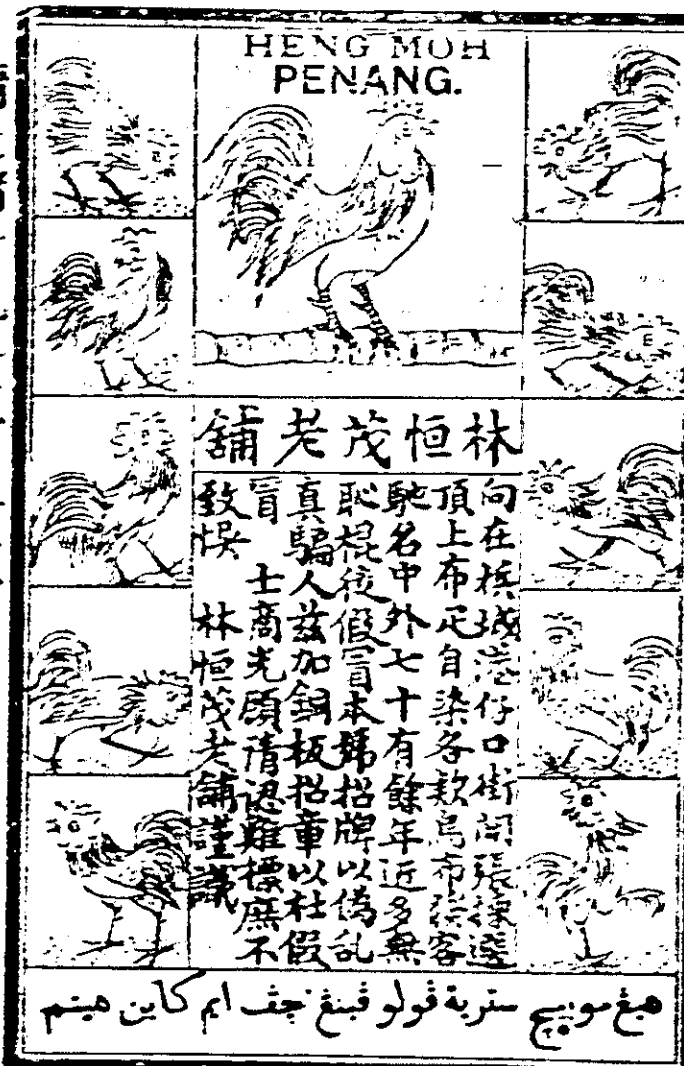 HENG MOH
PENANG.
林恒茂老舖
向在檳城港仔口街開張揀選
頂上布疋自染各款烏布客
馳名中外七十有餘年近多無
恥棍徒假冒本號招牌以偽乱
真騙人兹加銅板招章以杜假
冒 士商光顧請認雞標庶不
致悞 林恒茂老舖謹識
هيڠ سترية ڤولو ڤينڠ چڤ ايم كاين هيتم